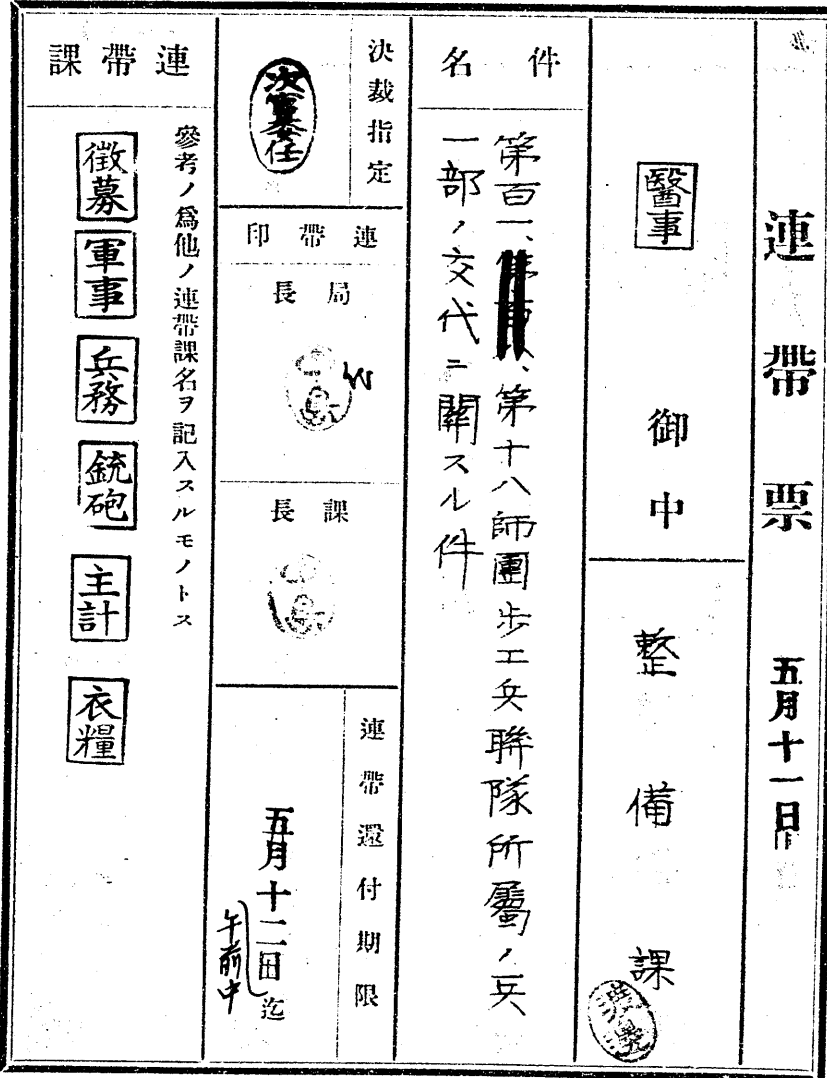 連帶票 五月十一日
醫事 御中
整備課
件名
第百一、第十八師團歩工兵聯隊所屬ノ兵
一部ノ交代ニ關スル件
決裁指定
次官委任
連帶印
局長
課長
連帶還付期限
五月十二日迄
午前中
連帶課
參考ノ爲他ノ連帶課名ヲ記入スルモノトス
徴募
軍事
兵務
銃砲
主計
衣糧